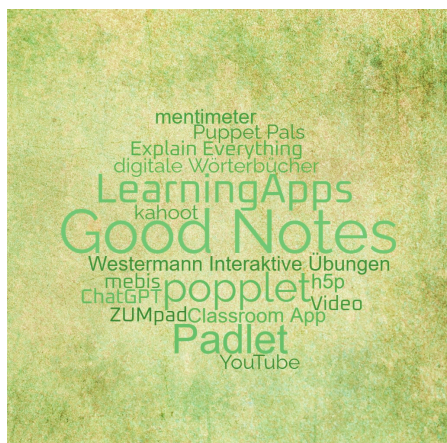 mentimeter
Puppet Pals
Explain Everything
digitale Wörterbücher
LearningApps
kahoot
Good Notes
Westermann Interaktive Übungen
mebis popplet h5p
ChatGPT Video
ZUMpad Classroom App
Padlet
YouTube